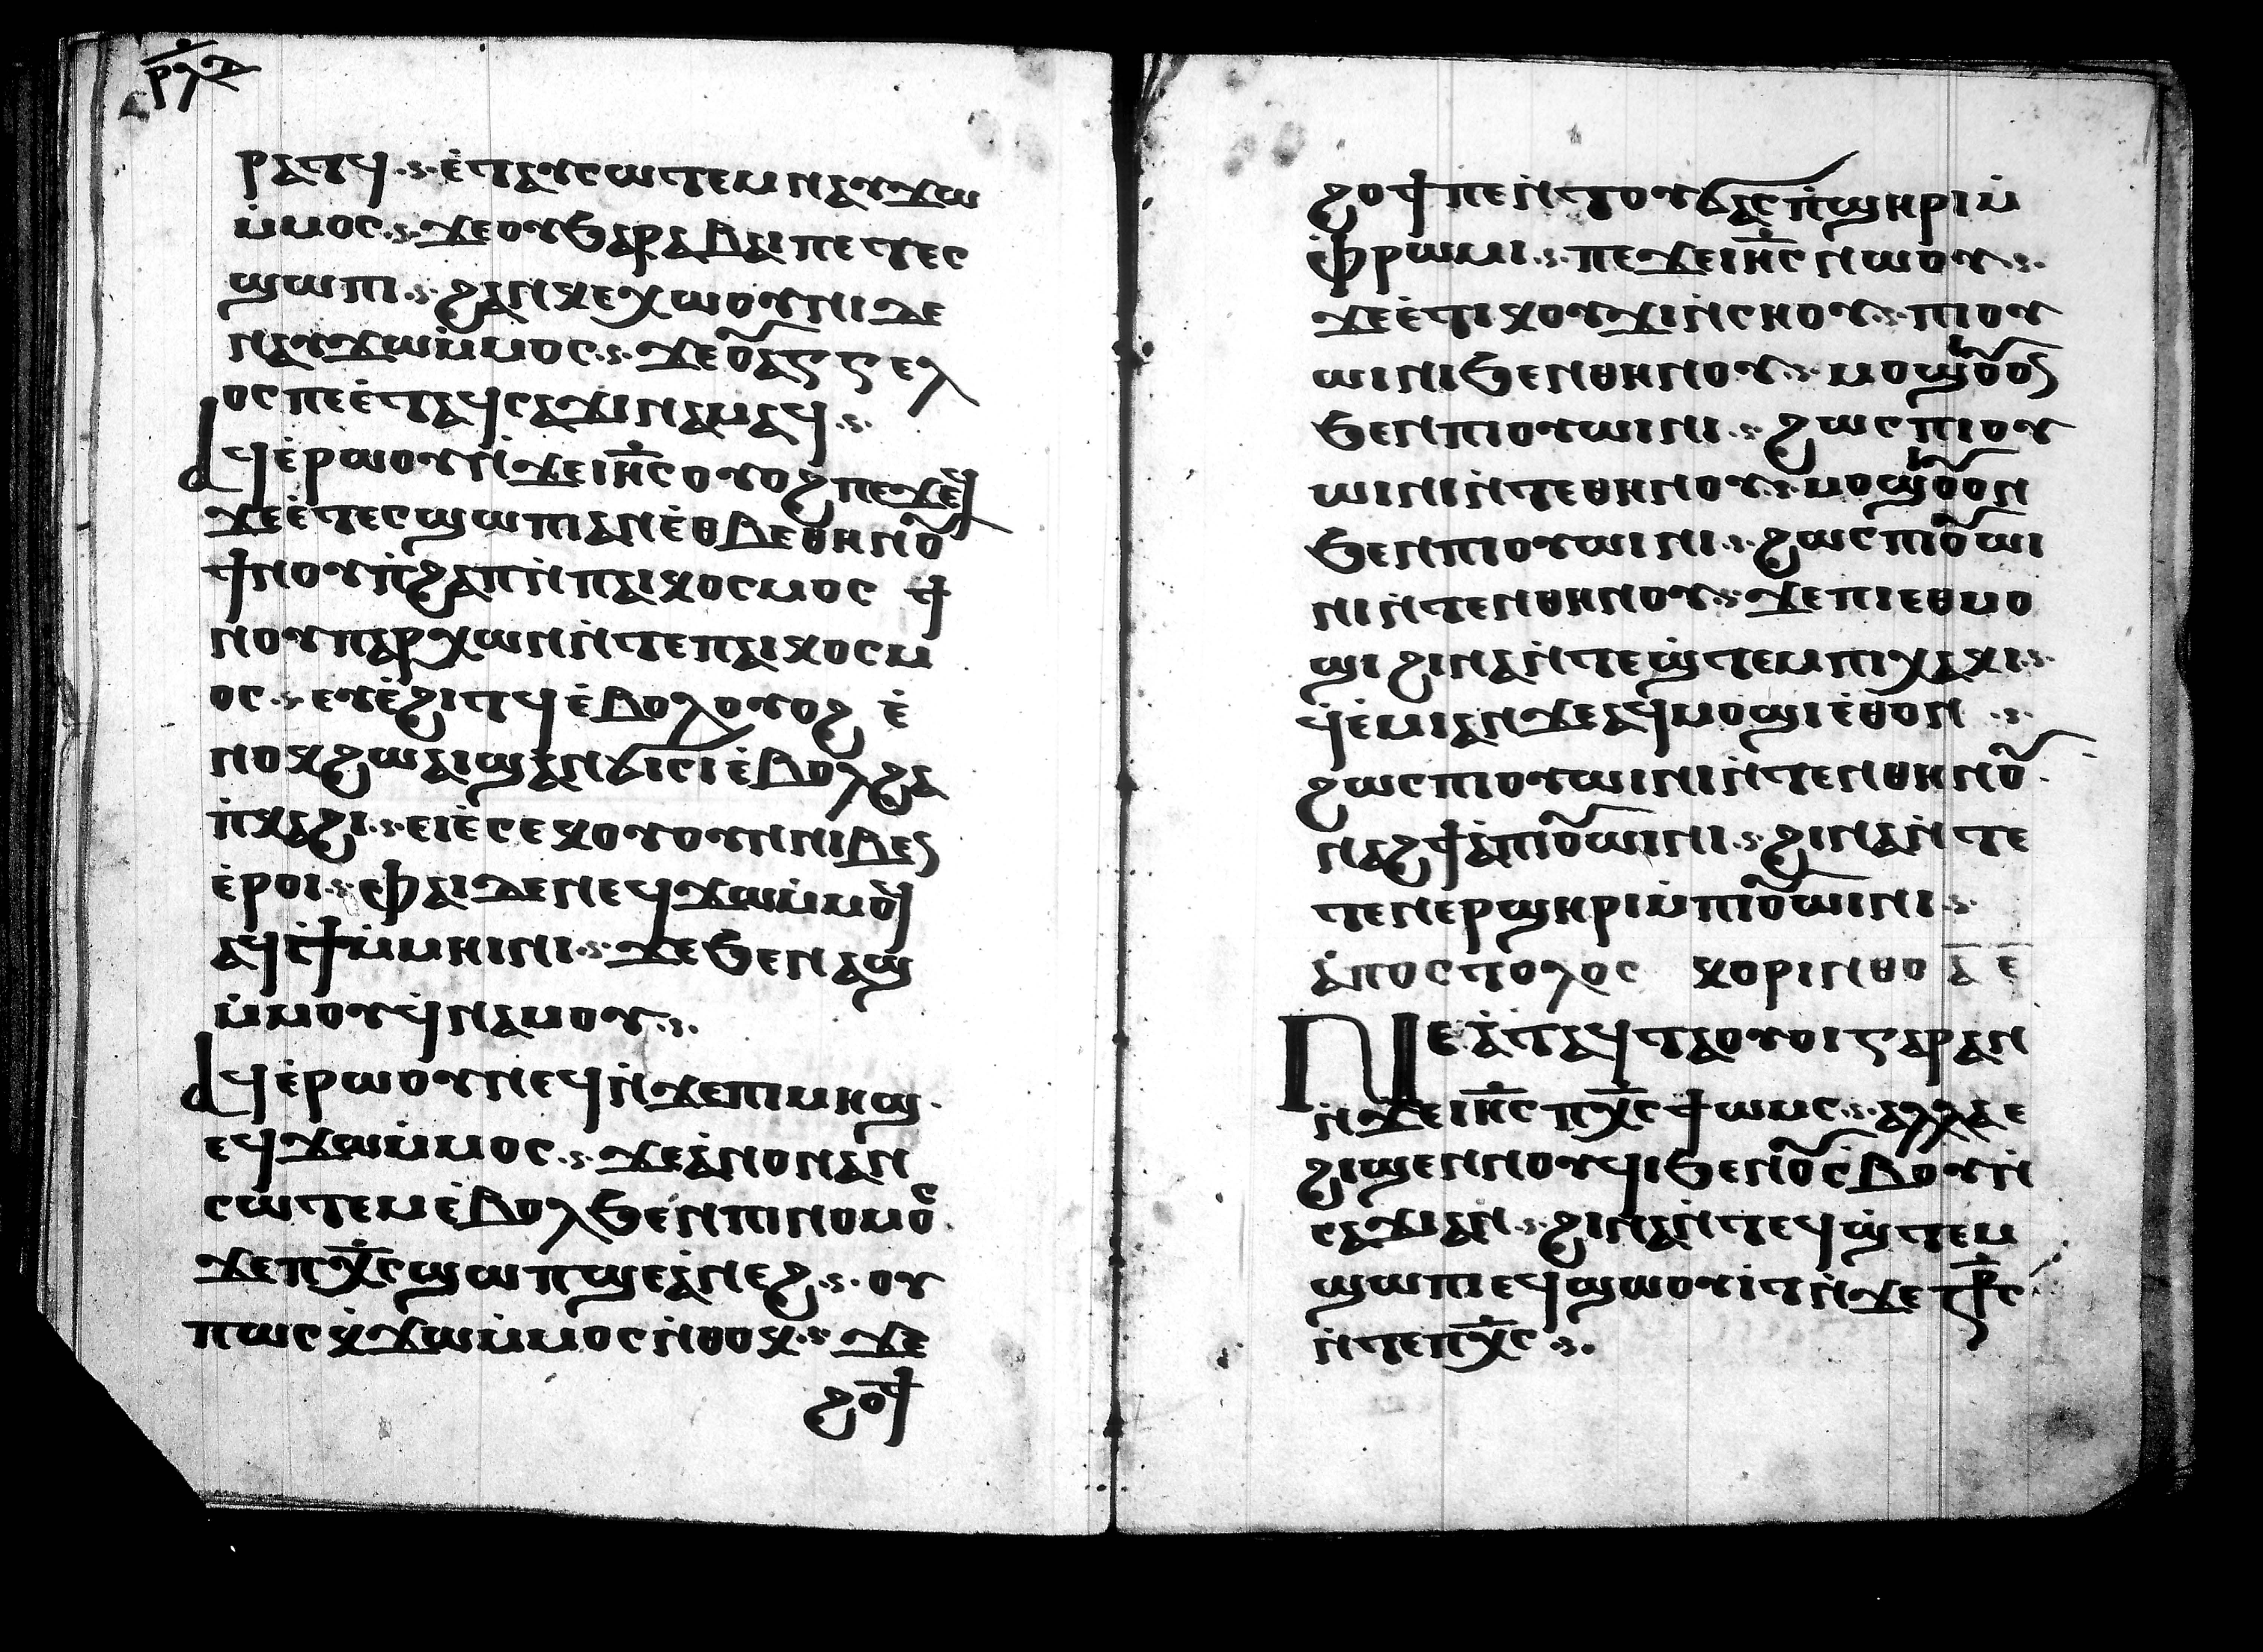 ⲣⲗⲇ
ⲣⲁⲧϥ ·ⲋ· ⲉ̇ⲧⲁⲩⲥⲱⲧⲉⲙ ⲛⲁⲩϫⲱ
ⲙ̇ⲙⲟⲥ ·ⲋ· ϫⲉ ⲟⲩϧⲁⲣⲁⲃⲁⲓ ⲡⲉⲧⲉⲥ
ϣⲱⲡⲓ ·ⲋ· ϩⲁⲛⲕⲉⲭⲱⲟⲩⲛⲓ ⲇⲉ
ⲛⲁⲩϫⲱ ⲙ̇ⲙⲟⲥ ·ⲋ· ϫⲉ ⲟ̅ⲁⲅⲅⲉⲗ
ⲟⲥ ⲡⲉ ⲉ̇ⲧⲁϥⲥⲁϫⲓ ⲛⲁⲙⲁϥ ·ⲋ·
ⲁϥⲉ̇ⲣⲱⲟⲩⲛ̇ϫⲉ ⲓⲏ̅ⲥ ⲟⲩⲟϩ ⲡⲉϫⲉϥ
ϫⲉ ⲉ̇ⲧⲉⲥϣⲱⲡⲓ ⲁⲛ ⲉ̇ⲑⲃⲉ ⲑⲏⲛⲟ̅
ϯⲛⲟⲩ ⲡ̇ϩⲁⲡ ⲛ̇ⲡⲁⲓⲕⲟⲥⲙⲟⲥ ϯ
ⲛⲟⲩ ⲡⲁⲣⲭⲱⲛ ⲛ̇ⲧⲉ ⲡⲁⲓⲕⲟⲥⲙ
ⲟⲥ ·ⲋ· ⲉⲩⲉ̇ϩⲓⲧϥ ⲉ̇ⲃⲟⲗ ⲟⲩⲟϩ ⲉ̇
ⲛⲟⲕ ϩⲱ ⲁⲓϣⲁⲛϭⲓⲥⲓ ⲉ̇ⲃⲟⲗϩⲁ
ⲡ̇ⲕⲁϩⲓ ·ⲋ· ⲉⲓⲉ̇ⲥⲉⲕ ⲟⲩⲟⲩⲛⲛⲓⲃⲉⲛ
ⲉ̇ⲣⲟⲓ ·ⲋ· ⲫⲁⲓ ⲇⲉ ⲛⲉϥϫⲱ ⲙ̇ⲙⲟϥ
ⲁϥϯ ⲙ̇ⲙⲏⲓⲛⲓ ·ⲋ· ϫⲉ ϧⲉⲛ ⲁϣ
ⲙ̇ⲙⲟⲩ ϥ̇ⲛⲁⲙⲟⲩ ·ⲋ·
ⲁϥⲉ̇ⲣⲱⲟⲩ ⲛⲉϥ ⲛ̇ϫⲉ ⲡⲓⲙⲏϣ ·
ⲉϥϫⲱ ⲙ̇ⲙⲟⲥ ·ⲋ· ϫⲉ ⲁ̇ⲛⲟⲛ ⲁⲛ
ⲥⲱⲧⲉⲙ ⲉ̇ⲃⲟⲗϧⲉⲛ ⲡⲓⲛⲟⲙⲟⲥ
ϫⲉ ⲡⲭ̅ⲥ ϣⲱⲡ ϣⲉ ⲁ̇ⲛⲉϩ ·ⲋ· ⲟⲩ
ⲡⲱⲥ ⲕ̇ϫⲱ ⲙ̇ⲙⲟⲥ ⲛ̇ⲑⲟⲕ ·ⲋ· ϫⲉ
ϩⲟϯ
ϩⲟϯ ⲡⲉ ⲛ̇ⲧⲟⲩϭⲁⲥ ⲡ̇ϣⲏⲣⲓ ⲙ̇
ⲫⲣⲱⲙⲓ ·ⲋ· ⲡⲉϫⲉ ⲓⲏ̅ⲥ ⲛⲱⲟⲩ ·ⲋ·
ϫⲉ ⲉ̇ⲧⲓ ⲕⲟⲩϫⲓ ⲛ̇ⲥⲏⲟⲩ ·ⲋ· ⲡⲓⲟⲩ
ⲱⲓⲛⲓ ϧⲉⲛ ⲑⲏⲛⲟⲩ ·ⲋ· ⲙⲟϣⲟ̅ⲟⲛ
ϧⲉⲛ ⲡⲓⲟⲩⲱⲓⲛⲓ ·ⲋ· ϩⲱⲥ ⲡⲓⲟⲩ
ⲱⲓⲛⲓ ⲛ̇ⲧⲉ ⲑⲏⲛⲟⲩ ·ⲋ· ⲙⲟϣⲟ̅ⲟⲛ
ϧⲉⲛ ⲡⲓⲟⲩⲱⲓⲛⲓ ·ⲋ· ϩⲱⲥ ⲡⲓⲟ̅ⲱⲓ
ⲛⲓ ⲛ̇ⲧⲉⲛ ⲑⲏⲛⲟⲩ ·ⲋ· ϫⲉ ⲡⲓⲉⲑⲙⲟ
ϣⲓ ϩⲓⲛⲁ ⲛ̇ⲧⲉϣ̇ⲧⲉⲙ ⲡⲓⲭⲁⲕⲓ ·ⲋ·
ϥ̇ⲉ̇ⲙⲓ ⲁⲛ ϫⲉ ⲁϥⲙⲟϣⲓ ⲉ̇ⲑⲟⲛ ·ⲋ·
ϩⲱⲥ ⲡⲓⲟⲩⲱⲓⲛⲓ ⲛ̇ⲧⲉⲛ ⲑⲏⲛⲟ̅ ·
ⲛⲁϩϯ ⲁ̇ⲡⲓⲟ̅ⲱⲓⲛⲓ ·ⲋ· ϩⲓⲛⲁ ⲛ̇ⲧⲉ
ⲧⲉⲛⲉⲣϣⲏⲣⲓ ⲙ̇ⲡⲓⲟ̅ⲱⲓⲛⲓ ·ⲋ·
ⲁ̇ⲡⲟⲥⲧⲟⲗⲟⲥ ⲕⲟⲣⲓⲛⲑⲟ ⲁ̅ ⲉ̅
ⲛⲉ ⲁ̇ⲧⲁϥⲧⲁⲟⲩⲟⲓ ⲅⲁⲣ ⲁⲛ
ⲛ̇ϫⲉ ⲓⲏ̅ⲥ ⲡⲭ̅ⲥ ϯⲱⲙⲥ ·ⲋ· ⲁⲗⲗⲁ ⲉ
ϩⲓϣⲉⲛⲛⲟⲩϥⲓ ϧⲉⲛ ⲟ̅ⲥⲃⲟⲩ ⲛ̇
ⲥⲁϫⲓ ⲁⲛ ·ⲋ· ϩⲓⲛⲁ ⲛ̇ⲧⲉϥϣ̇ⲧⲉⲙ
ϣⲱⲡⲓ ⲉϥϣⲱⲟⲩⲓ̇ⲧ ⲛ̇ϫⲉ ⲡⲓⲥ̅ⲧⲣⲥ
ⲛ̇ⲧⲉ ⲡⲭ̅ⲥ ·ⲋ·